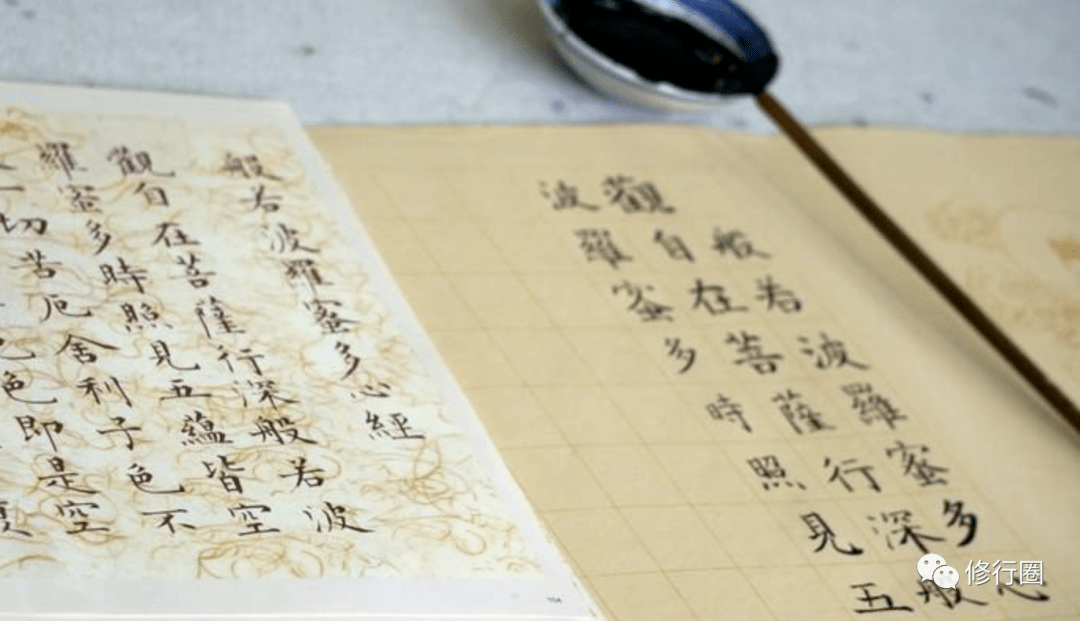 般若波羅蜜多心經
觀自在菩薩行深般若波
羅蜜多時照見五蘊皆空
一切苦厄舍利子色不
色色即是空
般若波羅蜜多心
觀自在菩薩行深般
波羅蜜多時照見五
修行圈